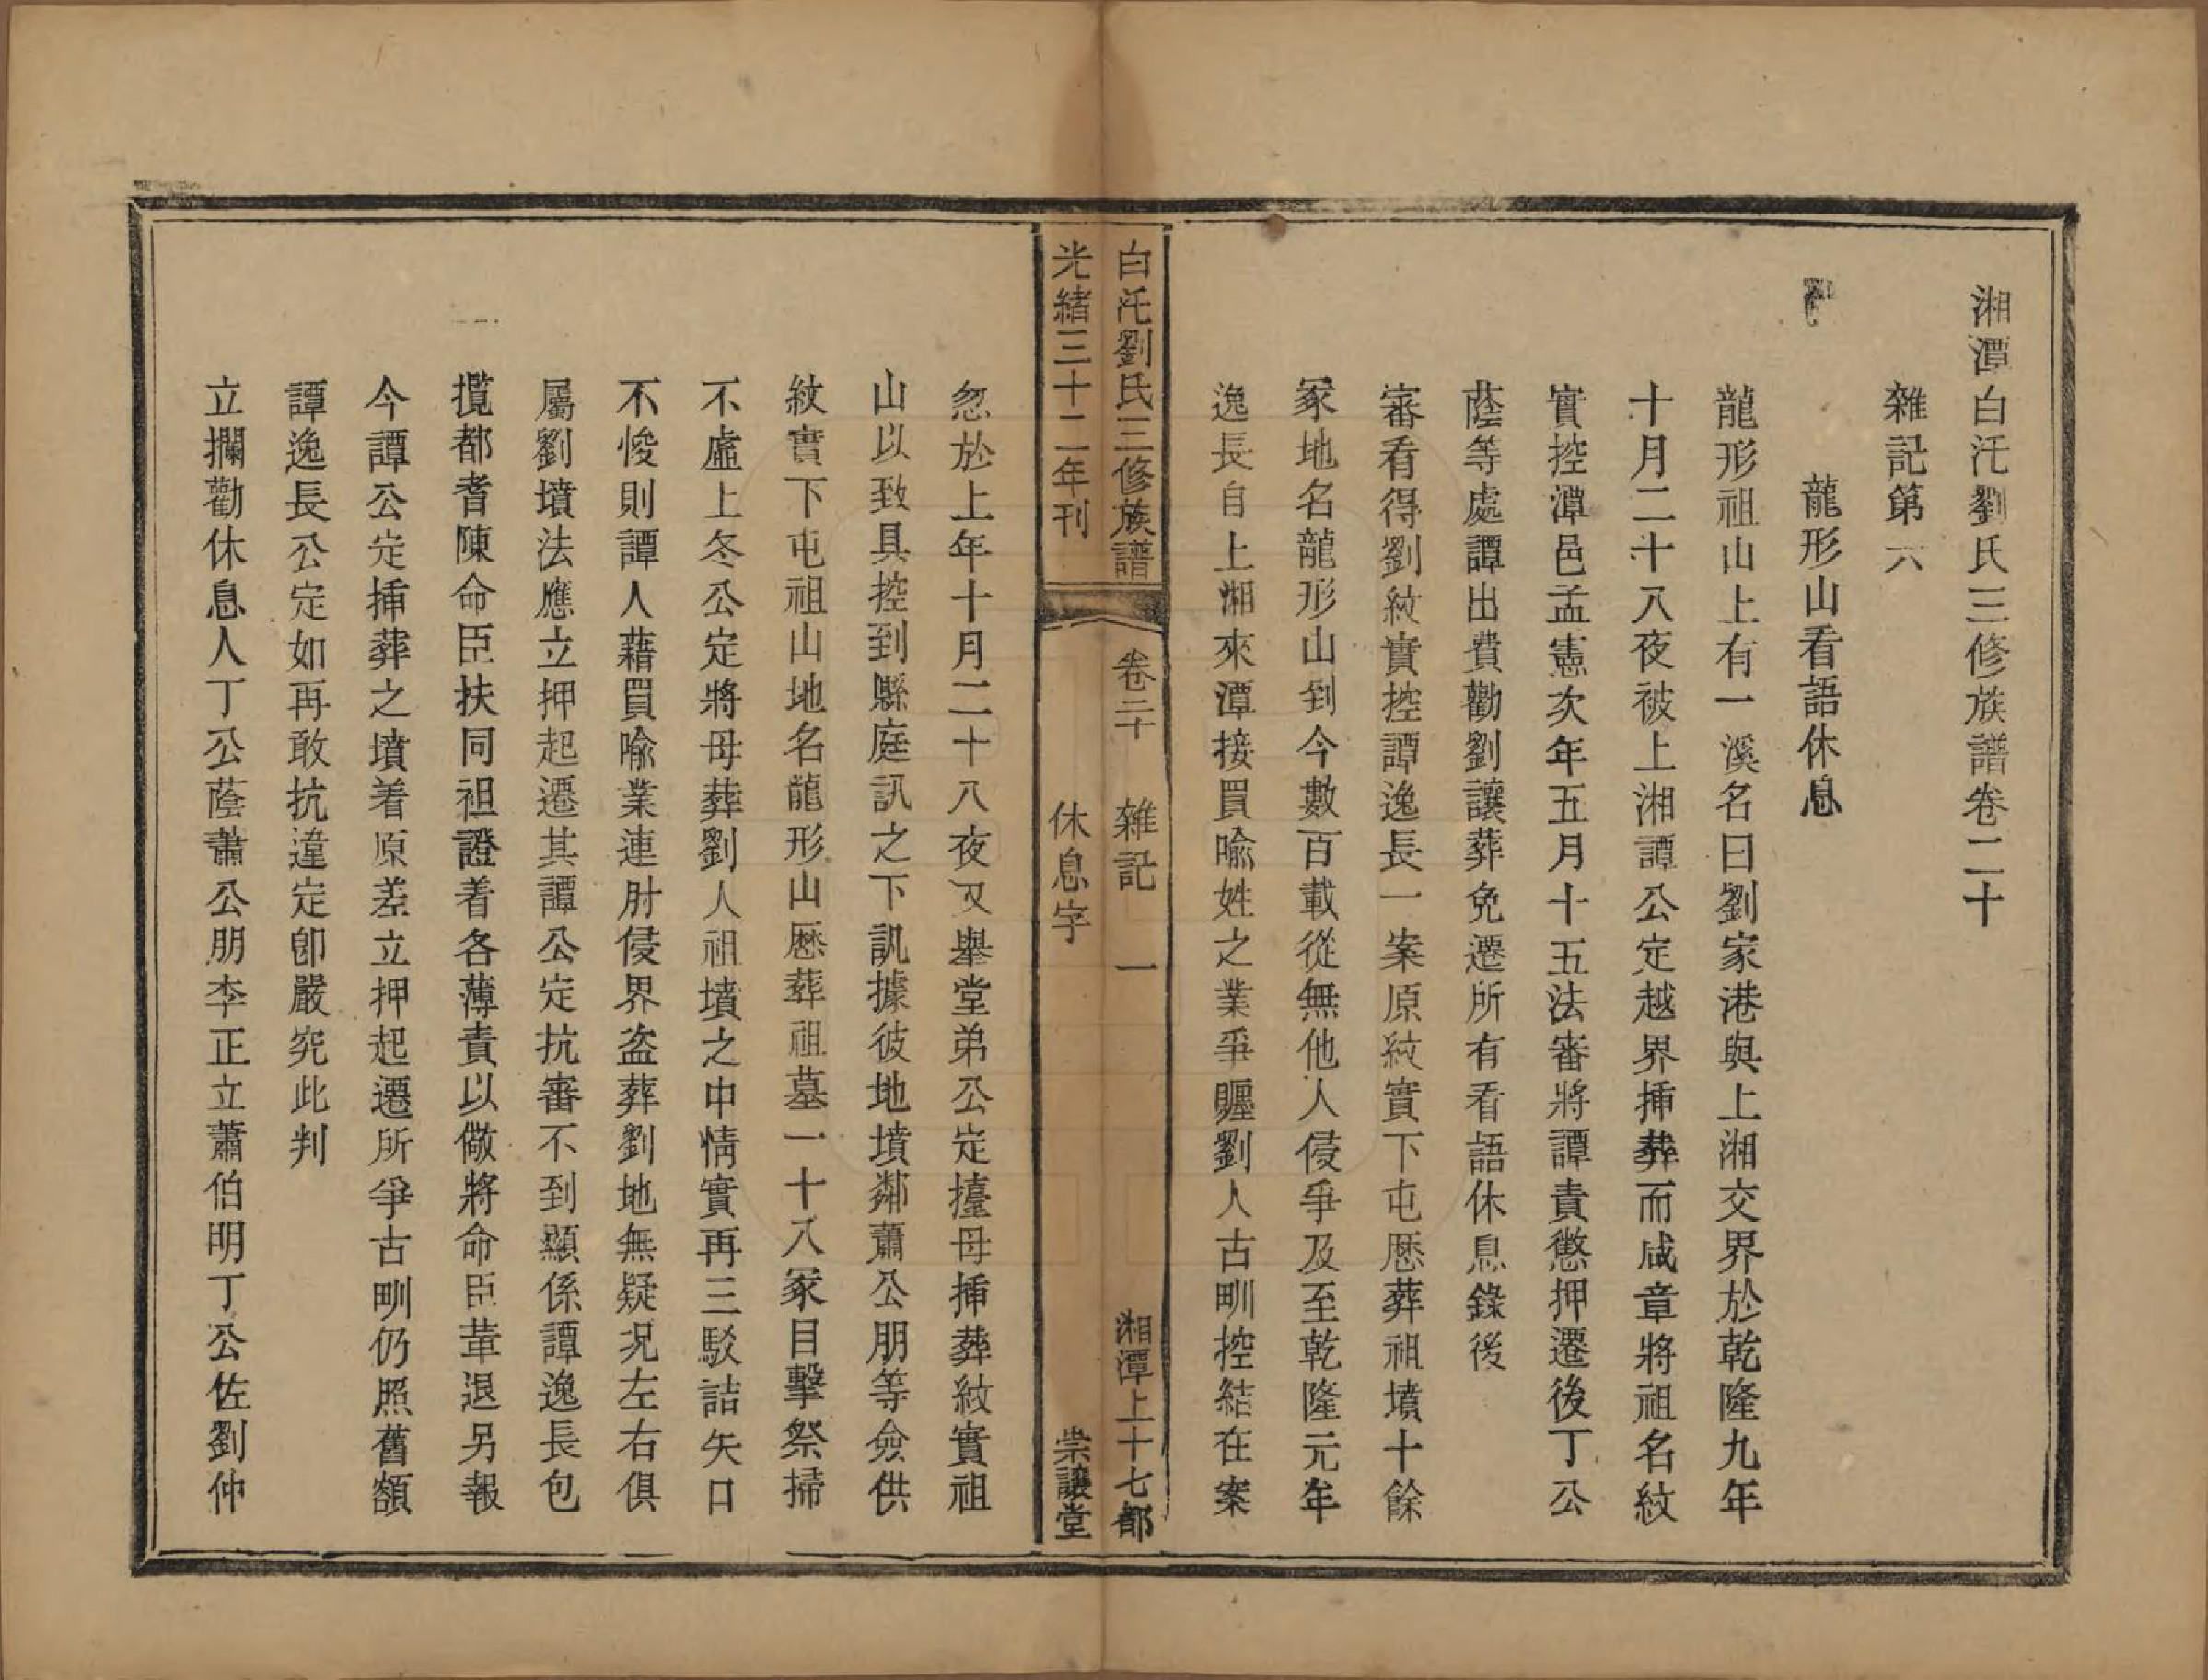 湘潭白汑劉氏三修族譜卷二十
雜記第六
龍形山看語休息
龍形祖山上有一溪名曰劉家港與上湘交界於乾隆九年
十月二十八夜被上湘譚公定越界揷葬而咸章將祖名紋
實控潭邑孟憲次年五月十五法審將譚責懲押遷後丁公
蔭等處譚出費勸劉讓葬免遷所有看語休息錄後
審看得劉紋實控譚逸長一案原紋實下屯歷葬祖墳十餘
冢地名龍形山到今數百載從無他人侵爭及至乾隆元年
逸長自上湘來潭接買喻姓之業爭纏劉人古甽控結在案
白汑劉氏三修族譜
卷二十
雜記
一
湘潭上十七都
光緒三十二年刊
休息字
崇讓堂
忽於上年十月二十八夜又舉堂弟公定擡母揷葬紋實祖
山以致具控到縣庭訊之下訊據彼地墳鄰蕭公朋等僉供
紋實下屯祖山地名龍形山歷葬祖墓一十八冢目擊祭掃
不虛上冬公定將母葬劉人祖墳之中情實再三駁詰矢口
不悛則譚人藉買喻業連肘侵界盜葬劉地無疑况左右俱
屬劉墳法應立押起遷其譚公定抗審不到顯係譚逸長包
攬都耆陳命臣扶同袒證着各薄責以儆將命臣革退另報
今譚公定揷葬之墳着原差立押起遷所爭古甽仍照舊額
譚逸長公定如再敢抗違定卽嚴究此判
立攔勸休息人丁公蔭蕭公朋李正立蕭伯明丁公佐劉仲